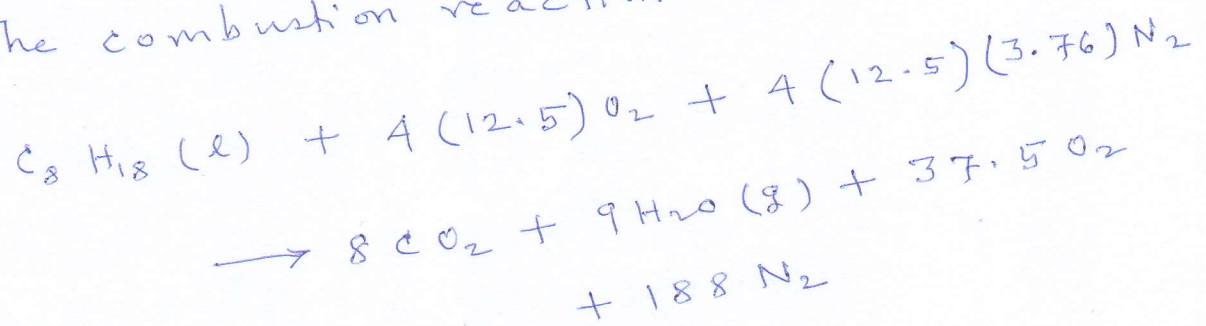 he combustion
C8 H18 (l) + 4 (12.5) O2 + 4 (12.5) (3.76) N2
⟶ 8 CO2 + 9 H2O (g) + 37.5 O2
+ 188 N2